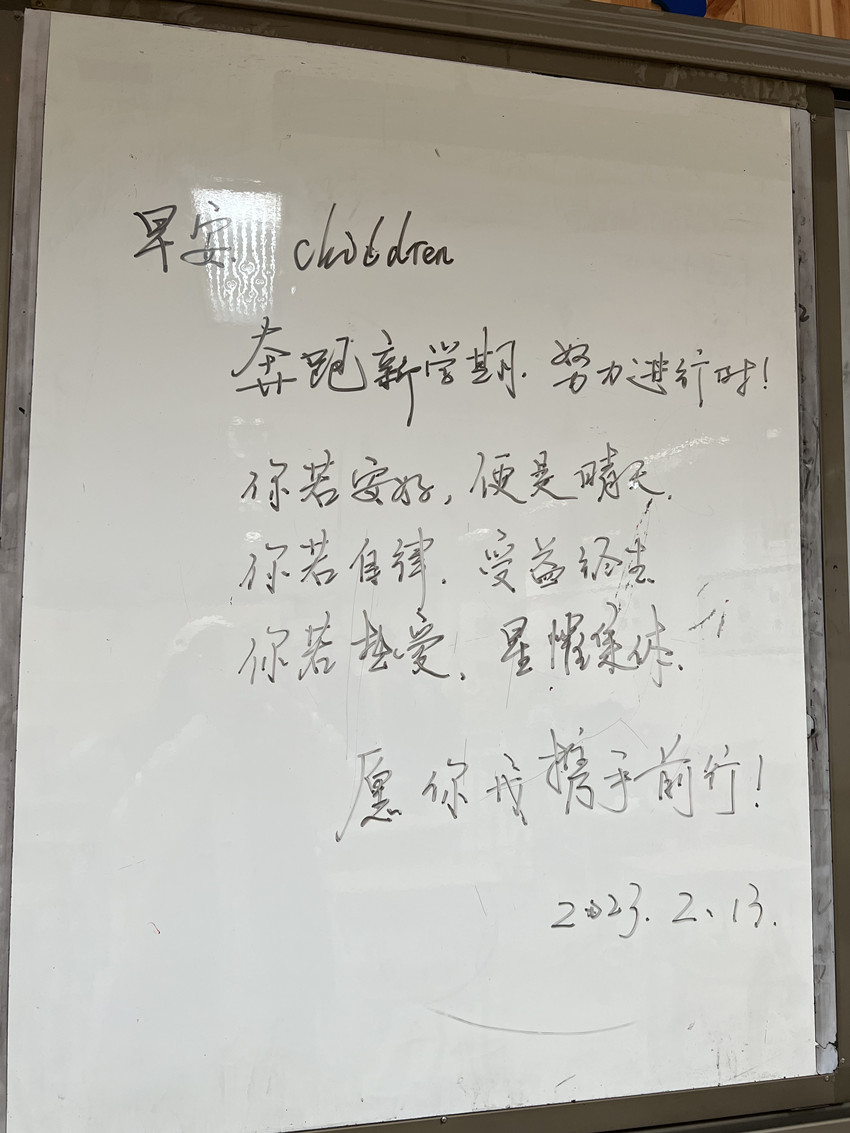 早安 children
奔跑新学期.努力进行时!
你若安好,便是晴天.
你若自律.受益终生
你若热爱.星耀集体.
愿你我携手前行!
2023.2.13.